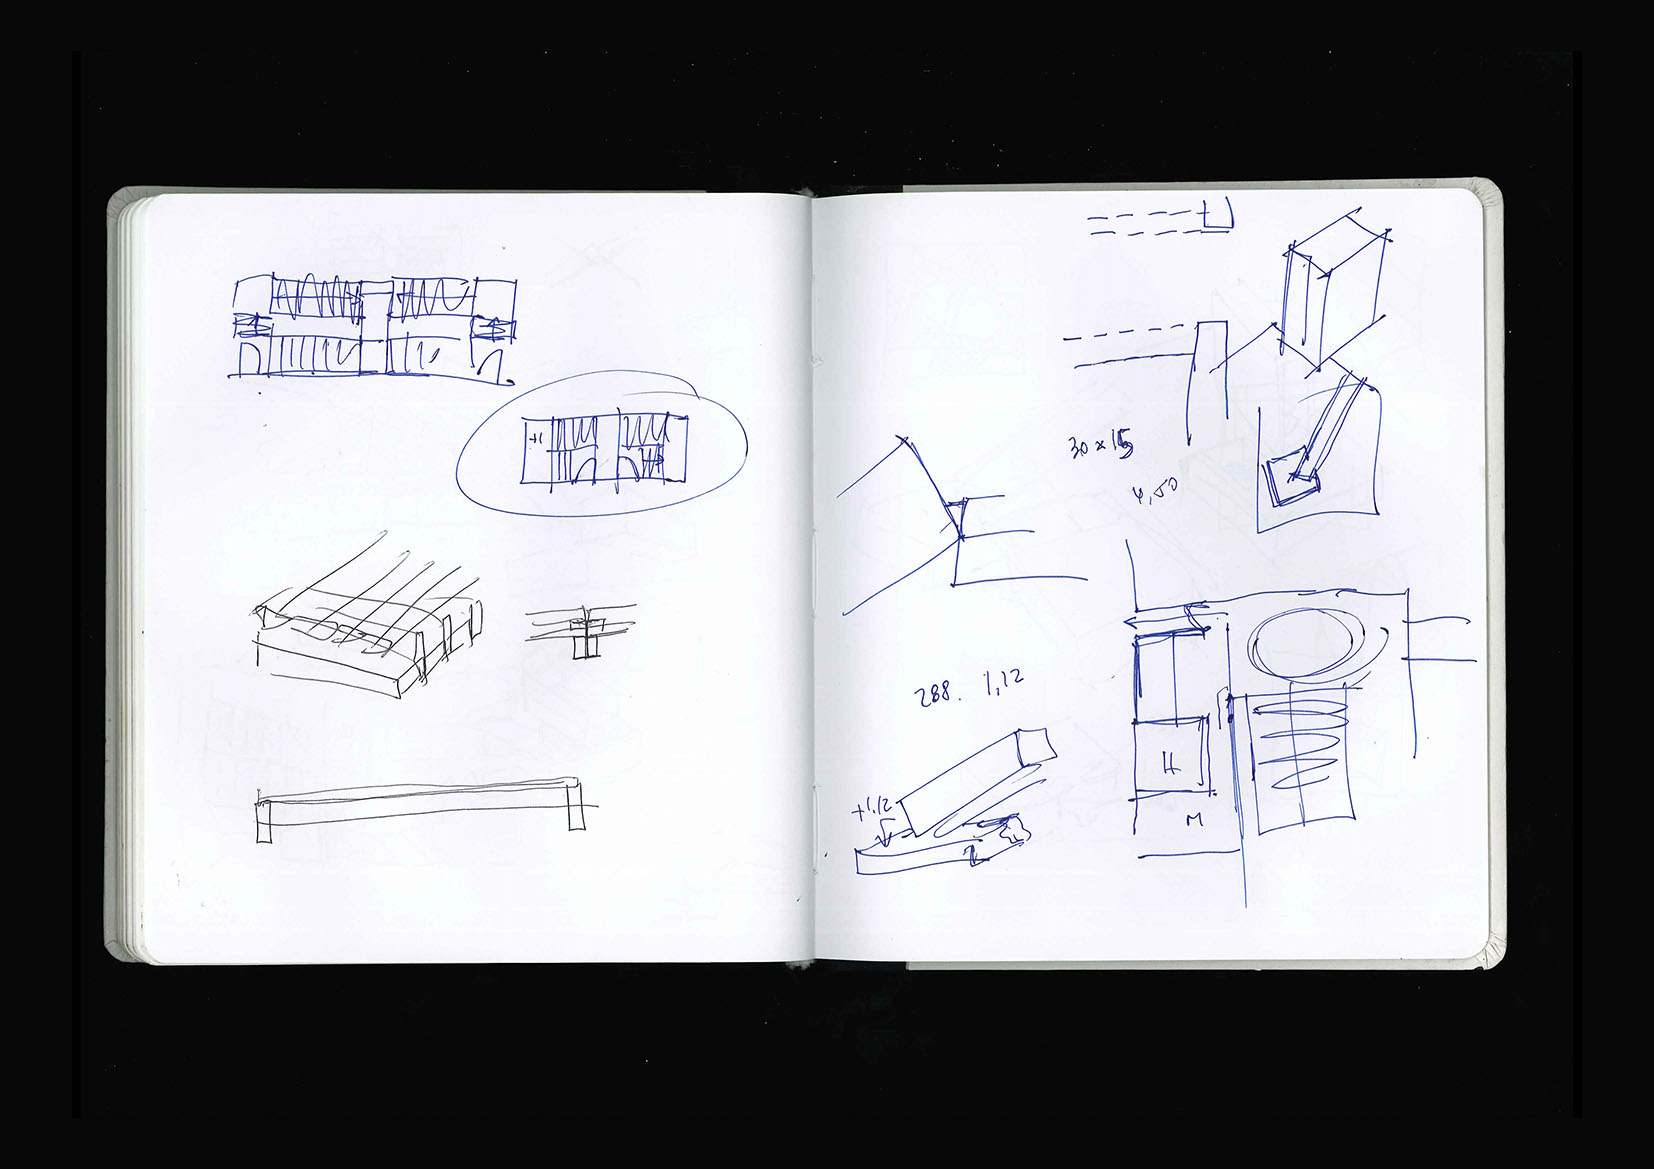 30 x 15
4,50
288. 1,12
+1,12
H
M